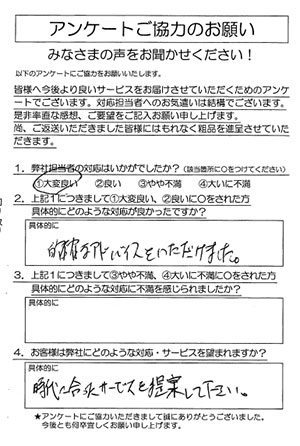 アンケートご協力のお願い
みなさまの声をお聞かせください！
以下のアンケートにご協力をお願いいたします。
皆様へ今後より良いサービスをお届けさせていただくためのアンケ
ートでございます。対応担当者へのお気遣いは結構でございます。
是非率直な感想、ご要望をご記入お願い申し上げます。
尚、ご返送いただきました皆様にはもれなく粗品を進呈させていた
だきます。
1．弊社担当者の対応はいかがでしたか？（該当箇所に○をつけてください）
①大変良い　②良い　③やや不満　④大いに不満
2．上記1につきまして①大変良い、②良いに○をされた方
具体的にどのような対応が良かったですか？
具体的に
的確なアドバイスをいただけました。
3．上記1につきまして③やや不満、④大いに不満に○をされた方
具体的にどのような対応に不満を感じられましたか？
具体的に
4．お客様は弊社にどのような対応・サービスを望まれますか？
具体的に
時代に合ったサービスを提案して下さい。
★アンケートにご協力いただきまして誠にありがとうございました。
今後とも何卒宜しくお願い申し上げます。